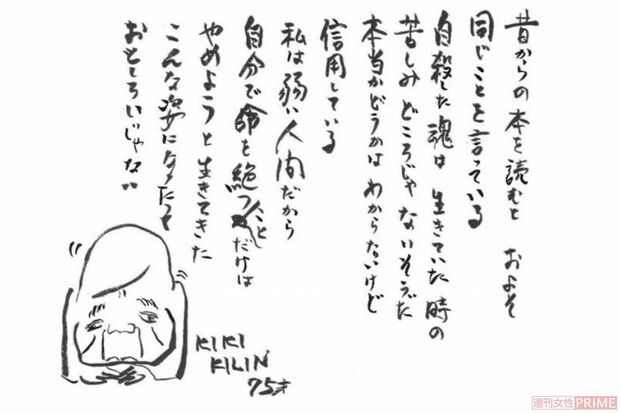 昔からの本を読むと およそ
同じことを言っている
自殺した魂は 生きていた時の
苦しみどころじゃないそうだ
本当かどうかは わからないけど
信用している
私は弱い人間だから
自分で命を絶つことだけは
やめようと生きてきた
こんな姿になったって
おもしろいじゃない
KIKI
KILIN
75才
週刊女性PRIME